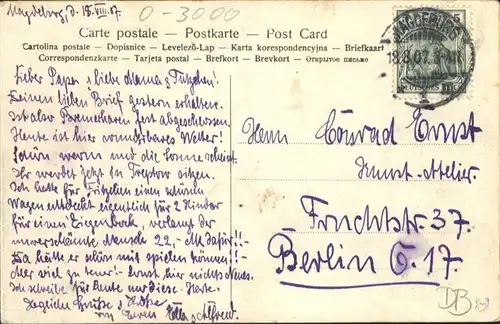 Magdeburg, d. 18. VIII. 07.
0-3000
Carte postale – Postkarte – Post Card
Cartolina postale – Dopisnice – Levelező-Lap – Karta korespondencyjna – Briefkaart
Correspondenzkarte – Tarjeta postal – Brefkort – Brevkort – Открытое письмо
MAGDEBURG
18.8.07.
5
DEUTSCHES
Lieber Papa, liebe Mama &
Deinen lieben Brief gestern erhalten.
Ist also fest abgeschlossen.
Heute ist hier wunderbares Wetter!
Schön warm und die Sonne scheint.
Ihr werdet jetzt in Treptow sitzen.
Ich hatte für Fritzchen einen schönen
Wagen entdeckt eigentlich für 2 Kinder
für einen Ziegenbock, verlangt der
unverschämte Mensch 22,- M dafür!!-
Da hätte er schön mit spielen können!!-
Aber viel zu teuer! Sonst hier nichts Neues.
Ich schreibe für heute nur diese Karte.
Herzliche Grüße & Küße
von Euren Ella & Alfred.
Herrn Conrad Ernst
Kunst-Atelier.
Fruchtstr. 37.
Berlin O. 17.
DB